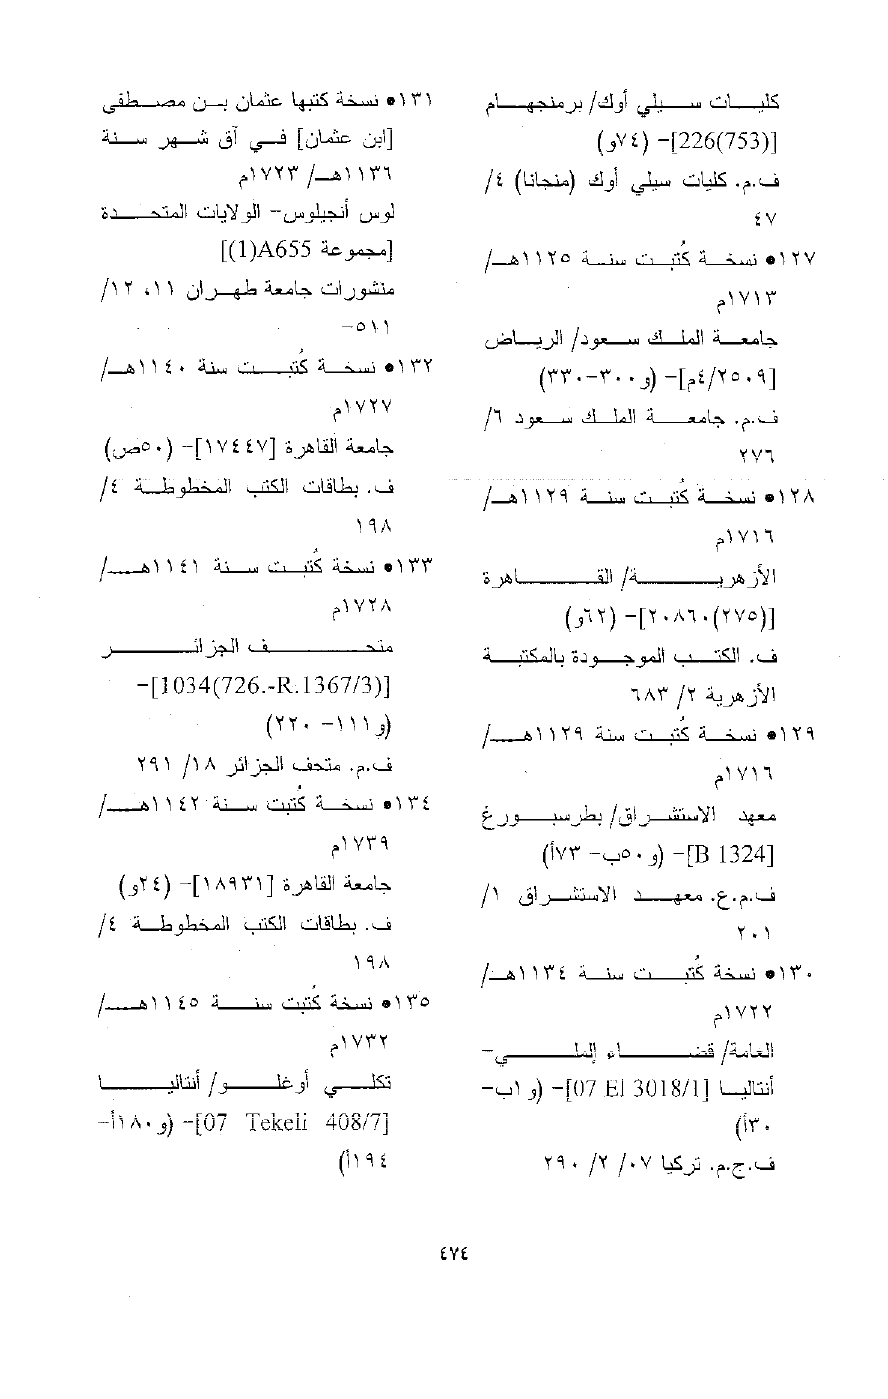 كليات سيلي أوك/ برمنجهام
[226(753)]- (٧٤و)
ف.م. كليات سيلي أوك (منجانا) ٤/
٤٧
١٢٧• نسخة كُتبت سنة ١١٢٥هـ/
١٧١٣م
جامعة الملك سعود/ الرياض
[٤/٢٥٠٩م]- (و٣٠٠-٣٣٠)
ف.م. جامعة الملك سعود ٦/
٢٧٦
١٢٨• نسخة كُتبت سنة ١١٢٩هـ/
١٧١٦م
الأزهرية/ القاهرة
[(٢٧٥)٢٠٨٦٠]- (٦٢و)
ف. الكتب الموجودة بالمكتبة
الأزهرية ٢/ ٦٨٣
١٢٩• نسخة كُتبت سنة ١١٢٩هـ/
١٧١٦م
معهد الاستشراق/ بطرسبورغ
[B 1324]- (و٥٠ب- ٧٣أ)
ف.م.ع. معهد الاستشراق ١/
٢٠١
١٣٠• نسخة كُتبت سنة ١١٣٤هـ/
١٧٢٢م
العامة/ قضاء إلملي-
أنتاليا [07 El 3018/1]- (و١ب-
٣٠أ)
ف.ج.م. تركيا ٠٧/ ٢/ ٢٩٠
١٣١• نسخة كتبها عثمان بن مصطفى
[ابن عثمان] في آق شهر سنة
١١٣٦هـ/ ١٧٢٣م
لوس أنجيلوس- الولايات المتحدة
[مجموعة A655(1)]
منشورات جامعة طهران ١١، ١٢/
٥١١-
١٣٢• نسخة كُتبت سنة ١١٤٠هـ/
١٧٢٧م
جامعة القاهرة [١٧٤٤٧]- (٥٠ص)
ف. بطاقات الكتب المخطوطة ٤/
١٩٨
١٣٣• نسخة كُتبت سنة ١١٤١هـ/
١٧٢٨م
متحف الجزائر
[1034(726.-R.1367/3)]-
(و١١١- ٢٢٠)
ف.م. متحف الجزائر ١٨/ ٢٩١
١٣٤• نسخة كُتبت سنة ١١٤٢هـ/
١٧٣٩م
جامعة القاهرة [١٨٩٣١]- (٢٤و)
ف. بطاقات الكتب المخطوطة ٤/
١٩٨
١٣٥• نسخة كُتبت سنة ١١٤٥هـ/
١٧٣٢م
تكلي أوغلو/ أنتاليا
[07 Tekeli 408/7]- (و١٨٠أ-
١٩٤أ)
٤٧٤